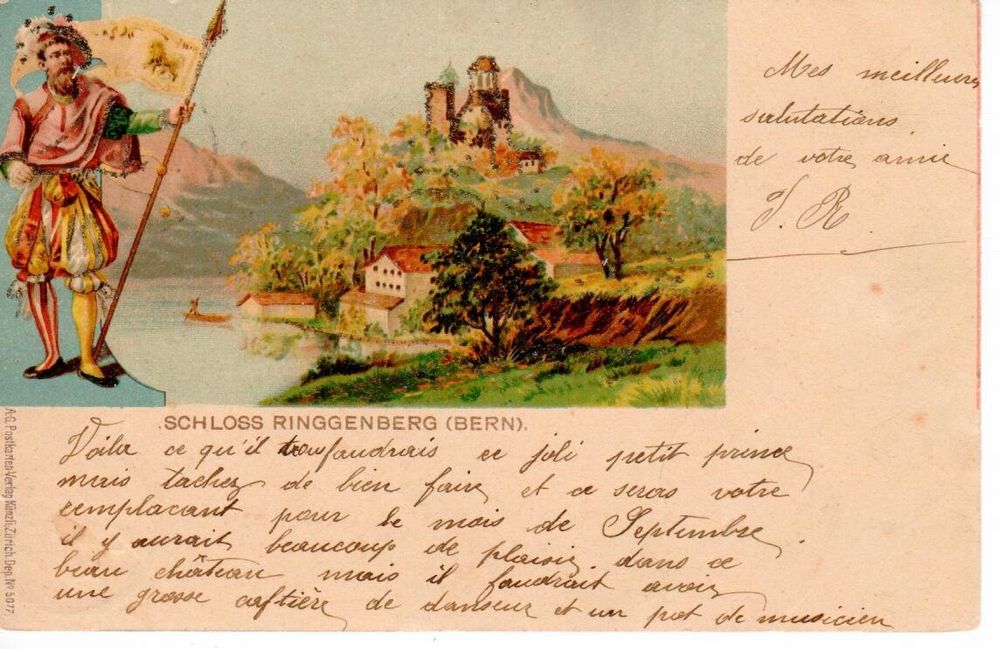 Mes meilleures
salutations
de votre amie
J. R.
SCHLOSS RINGGENBERG (BERN).
Voila ce qu'il faudrais ce joli petit prince
mais tachez de bien faire et ce seras votre
remplacant pour le mois de Septembre.
il y aurait beaucoup de plaisir dans ce
beau château mais il faudrait avoir
une grosse caftière de danseur et un pot de musicien
A.G. Postkarten-Verlag Künzli, Zürich. Dep. Nº 5077.